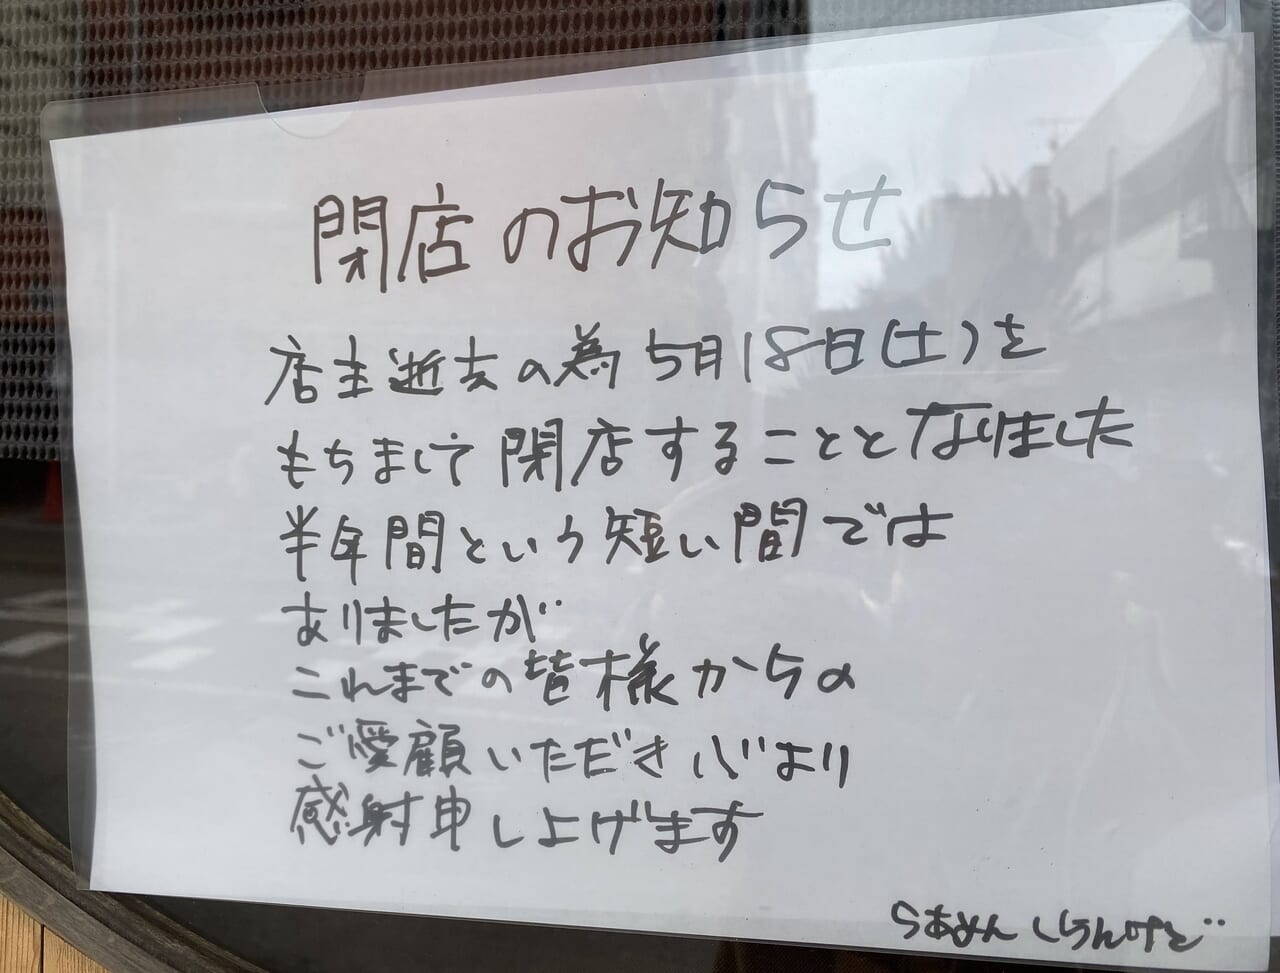 閉店のお知らせ
店主逝去の為5月18日(土)を
もちまして閉店することとなりました
半年間という短い間では
ありましたが
これまでの皆様からの
ご愛顧いただき心より
感射申し上げます
らあめん しらんけど